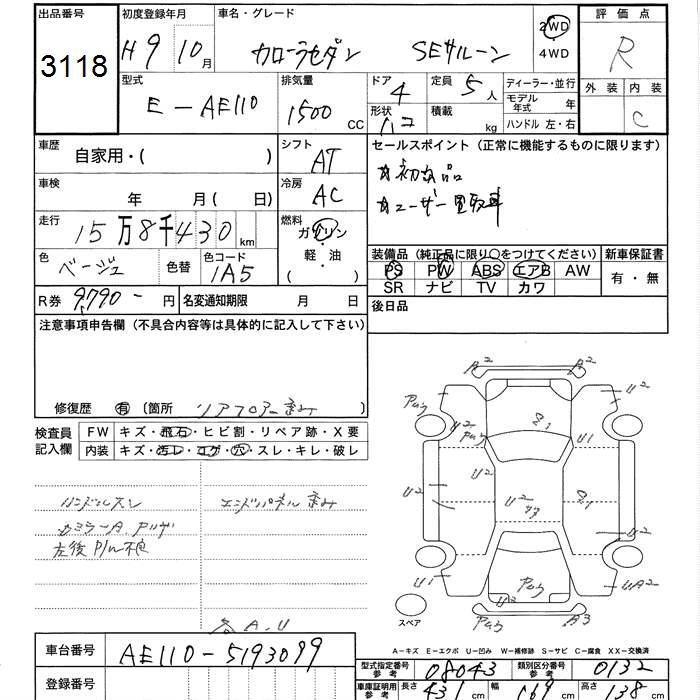 出品番号 初度登録年月 車名・グレード 2WD 評価点
3118 H9 10月 カローラセダン SEサルーン 4WD R
型式 排気量 ドア 4 定員 5人 ディーラー・並行 外装 内装
E-AE110 1500 CC 形状 ハコ 積載 kg モデル年式 年 C
ハンドル 左・右
車歴 自家用・( ) シフト AT セールスポイント (正常に機能するものに限ります)
車検 年 月(日) 冷房 AC ☆初出品
☆ユーザー買取車
走行 15万8千430km 燃料 ガソリン・軽・油 ( )
色 ベージュ 色替 色コード 1A5 装備品 (純正品に限り○をつけてください) 新車保証書
PS PW ABS エアB AW 有・無
SR ナビ TV カワ
R券 9,790-円 名変通知期限 月 日 後日品
注意事項申告欄 (不具合内容等は具体的に記入して下さい)
修復歴 有 (箇所 リアフロアー歪み
検査員記入欄 FW キズ・飛石・ヒビ割・リペア跡・X要
内装 キズ・汚レ・コゲ・穴・スレ・キレ・破レ
ハンドルスレ エンドパネル歪み
左後 P/W不良
A2 A2
U2
U2 U1
U2 U2
U2
U1 U2 UA2
A3
スペア
A.U
A-キズ E-エクボ U-凹み W-補修跡 S-サビ C-腐食 XX-交換済
車台番号 AE110-5193099
型式指定番号 参考 08043 類別区分番号 参考 0132
登録番号 車庫証明用 参考 長さ 431cm 幅 169cm 高さ 138cm